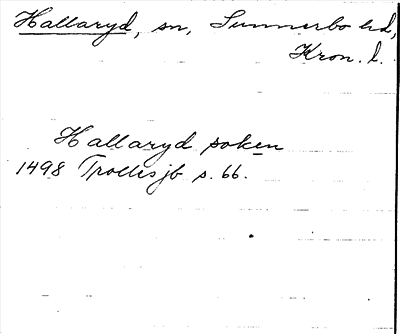 Hallaryd, sn, Sunnerbo hd,
Kron. l.
Hallaryd soken
1498 Trollesjb s. 66.